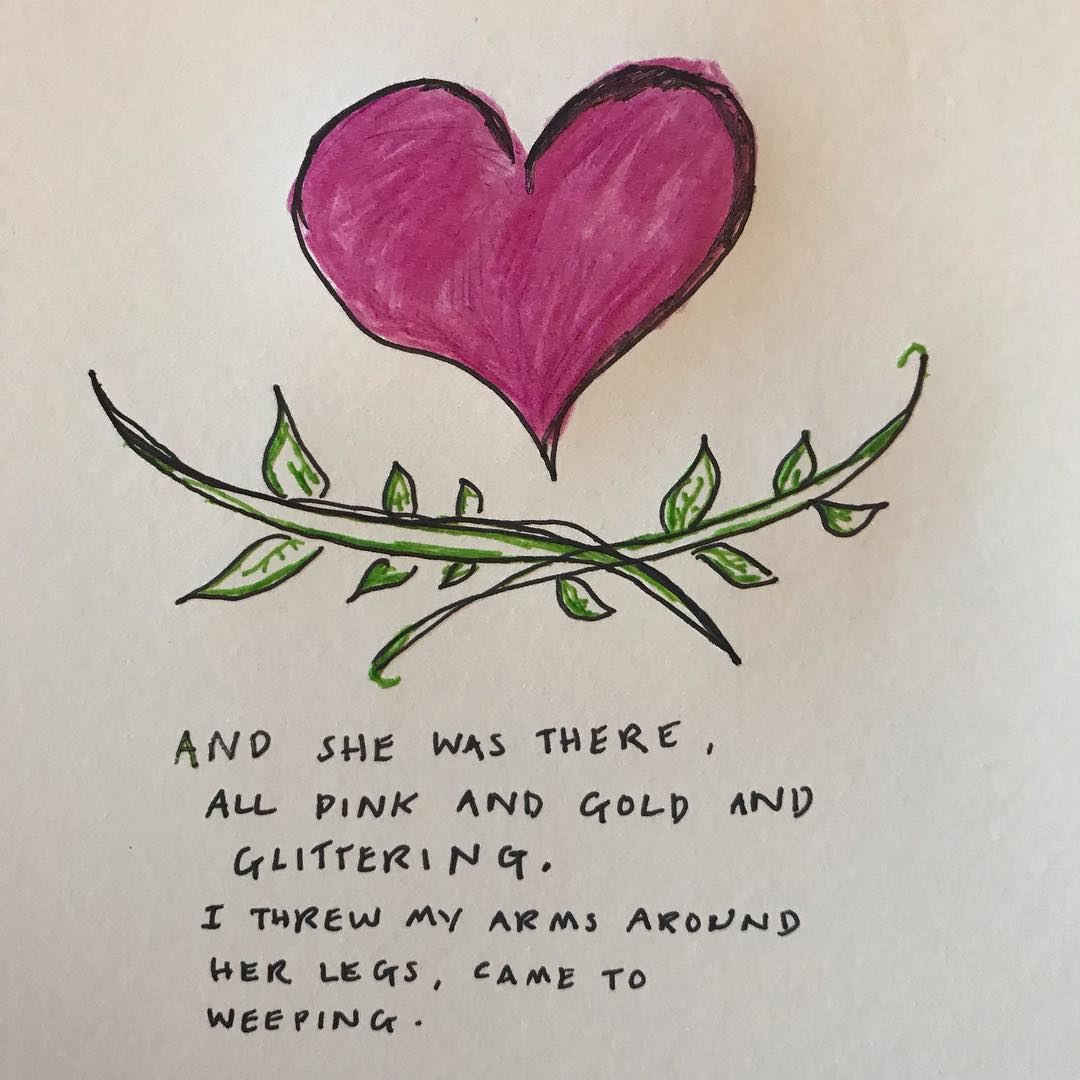 AND SHE WAS THERE,
ALL PINK AND GOLD AND
GLITTERING.
I THREW MY ARMS AROUND
HER LEGS, CAME TO
WEEPING.